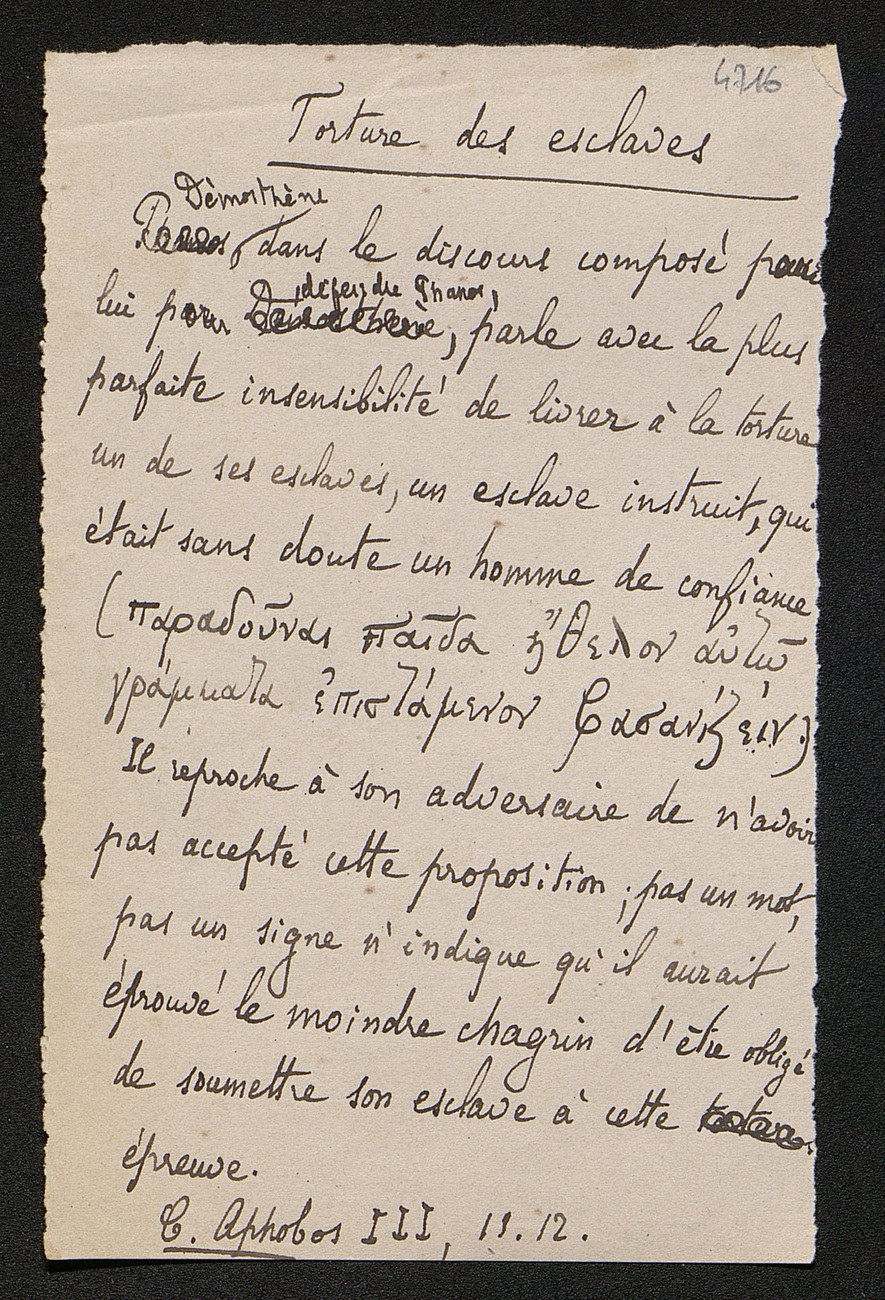 4716
Torture des esclaves
Démosthène
, dans le discours composé
lui pour , défendre Phanos,
, parle avec la plus
parfaite insensibilité de livrer à la torture
un de ses esclaves, un esclave instruit, qui
était sans doute un homme de confiance
(παραδοῦναι παῖδα ἤθελον αὐτῷ
γράμματα ἐπιστάμενον βασανίζειν.)
Il reproche à son adversaire de n'avoir
pas accepté cette proposition ; pas un mot,
pas un signe n'indique qu'il aurait
éprouvé le moindre chagrin d'être obligé
de soumettre son esclave à cette
épreuve.
C. Aphobos III, 11.12.